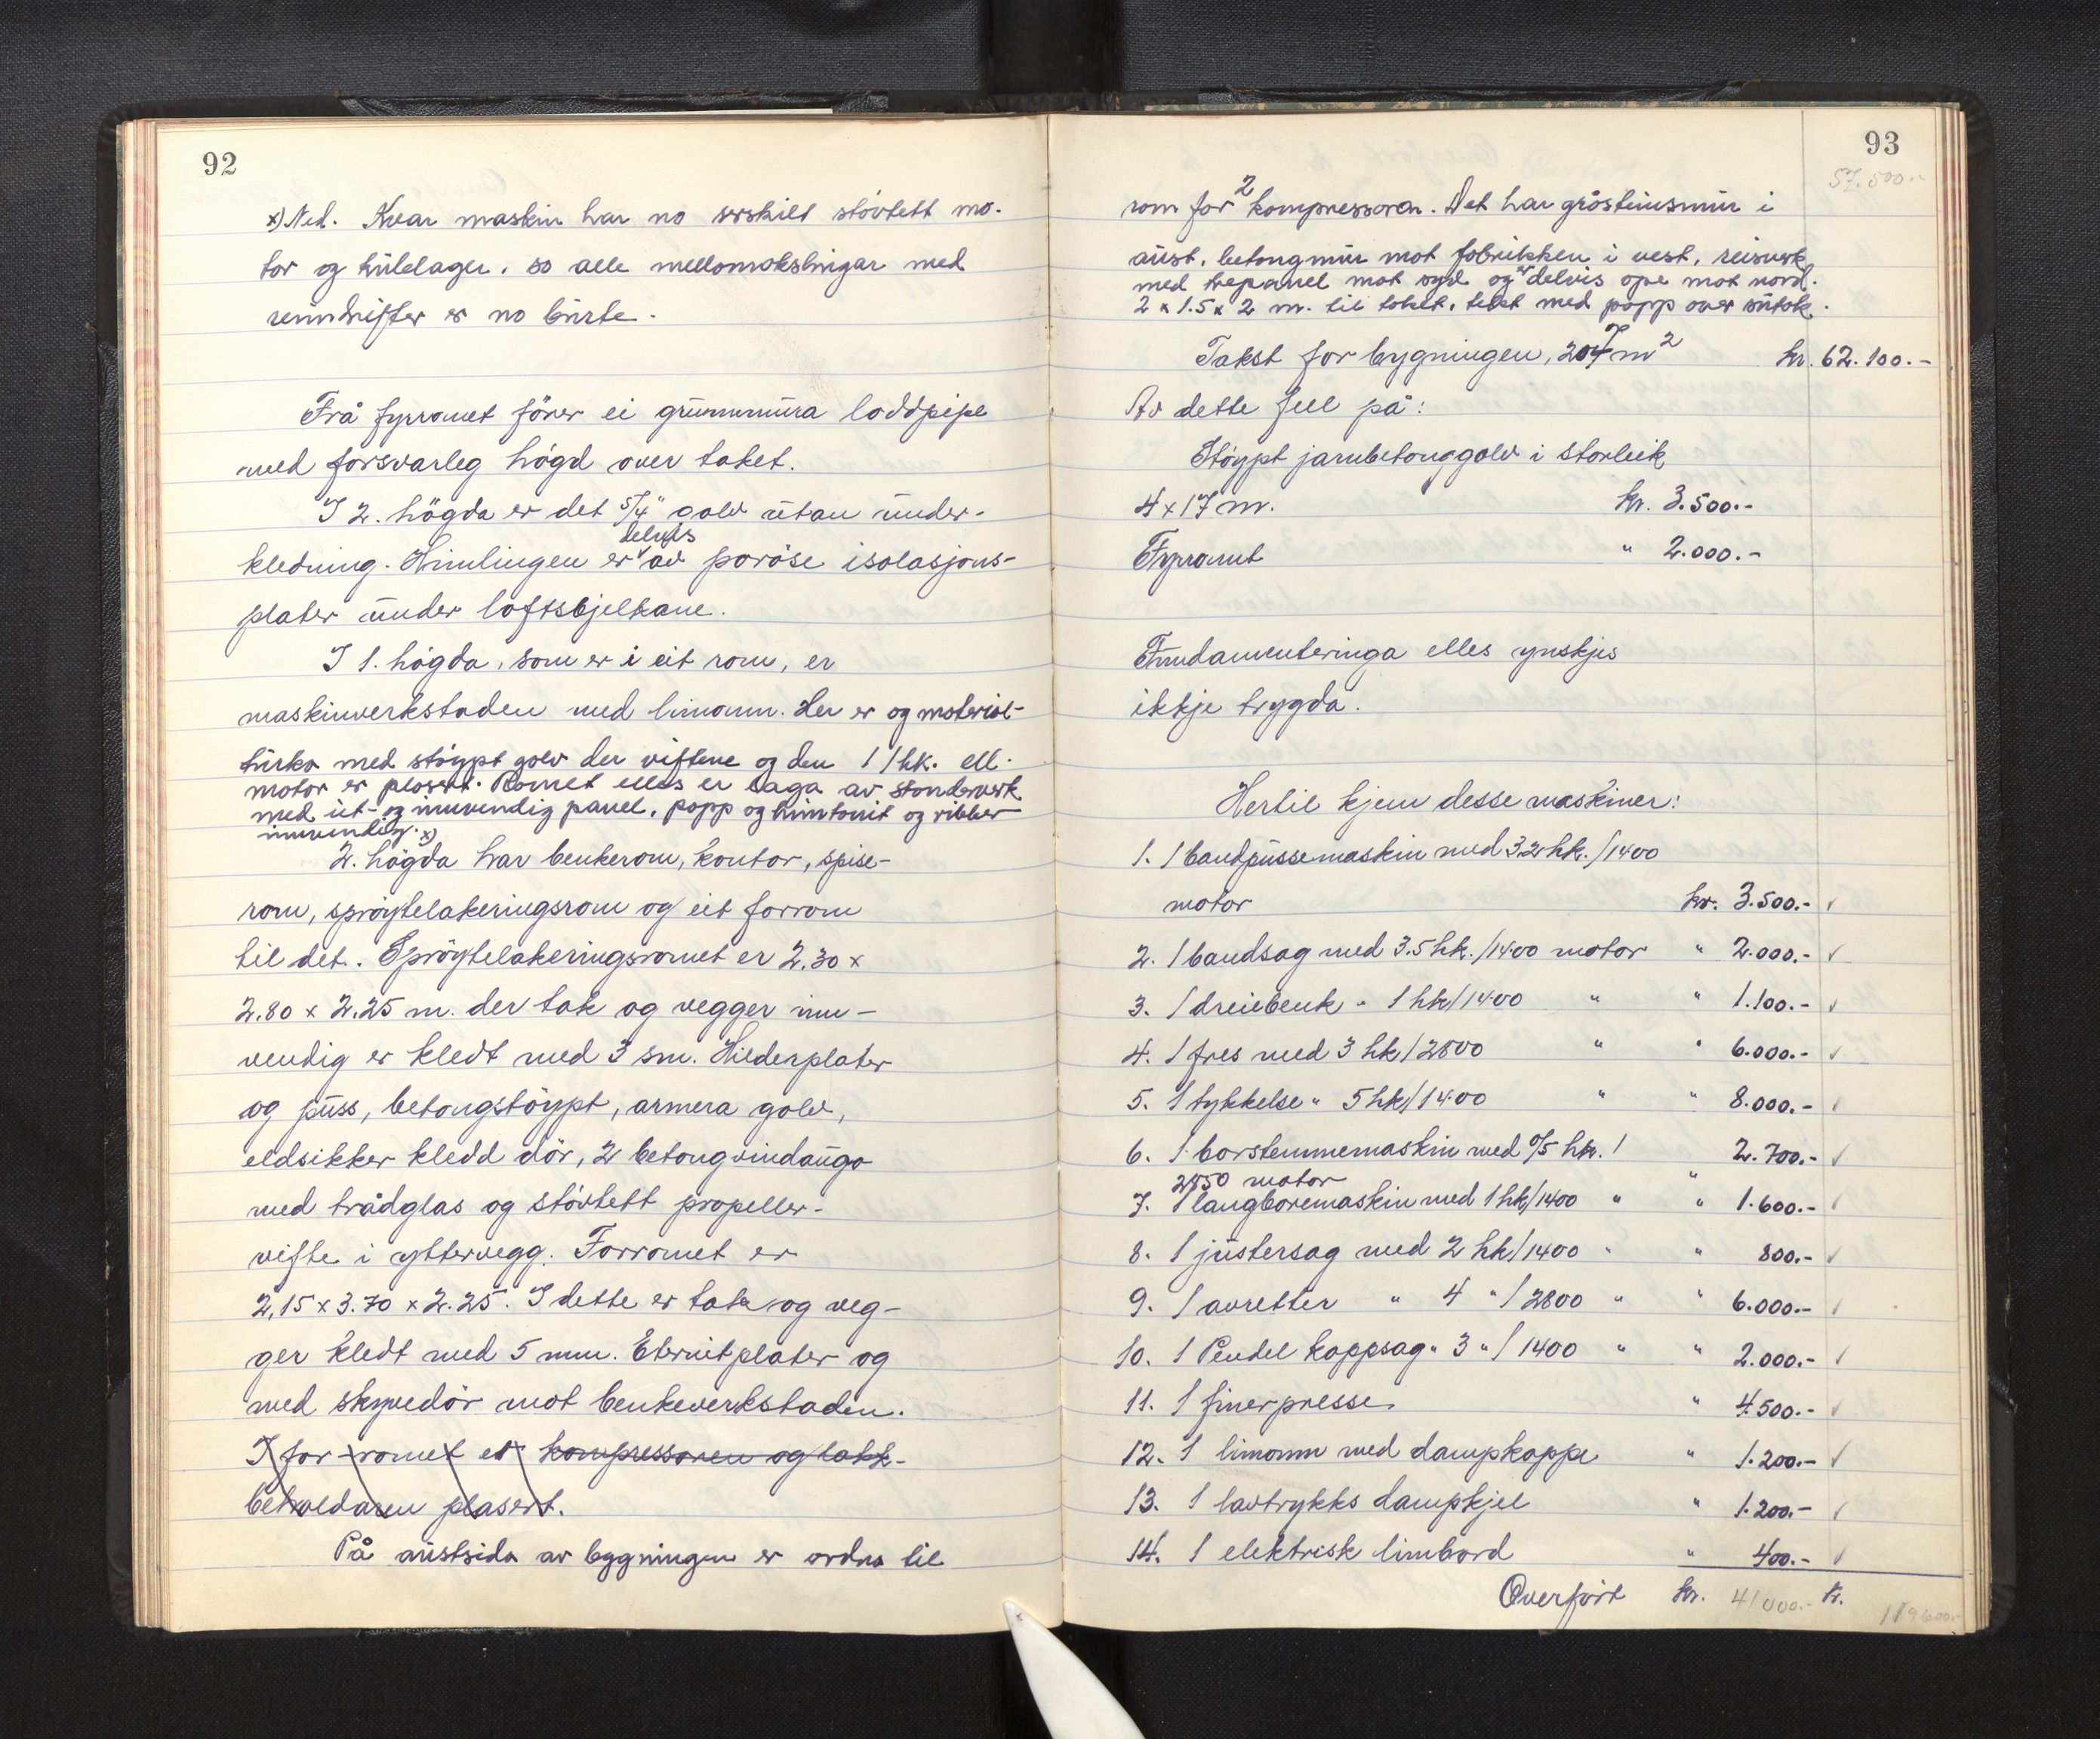 92
x) Ned. Kvar maskin har no serskilt støvtett mo-
tor og kulelager, so alle mellomakslingar med
reimdrifter er no burte.
Frå fyrromet förer ei grunnmura loddpipe
med forsvarleg högd over taket.
I 2. högda er det 5/4" golv utan under-
delvis
kledning. Himlingen er av porøse isolasjons-
plater under loftsbjelkane.
I 1. högda, som er i eit rom, er
maskinverkstaden med limomn. Her er og material-
turka med støypt golv der viftene og den 1 1 hk. ell.
motor er plasert. Romet elles er laga av stenderverk
med ut- og innvendig panel, papp og huntonit og ribber
innvendig. x)
2. högda har benkerom, kontor, spise-
rom, sprøytelakeringsrom og eit forrom
til det. Sprøytelakeringsromet er 2,30 x
2,80 x 2,25 m. der tak og vegger inn-
vendig er kledt med 3 sm. Hilderplater
og puss, betongstöypt, armera golv,
eldsikker kledd dör, 2 betongvindaugo
med trådglas og støvtett propeller-
vifte i yttervegg. Forromet er
2,15 x 3.70 x 2.25. I dette er tak og veg-
ger kledt med 5 mm. Eternitplater og
med skyvedör mot benkeverkstaden.
I for-romet er kompressoren og lakk-
beholdaren plasert.
På austsida av bygningen er ordna til
93
57.500.-
2
rom for kompressoren. Det har gråsteinsmur i
aust, betongmur mot fabrikken i vest, reisverk
med trepanel mot syd og er delvis ope mot nord.
2 x 1.5 x 2 m. til taket, tekt med papp over sutak.
Takst for bygningen, 207 m2 kr. 62.100.-
Av dette fell på:
Støypt jarnbetonggolv i storleik
4 x 17 m. kr. 3.500.-
Fyrromet " 2.000.-
Fundamenteringa elles ynskjes
ikkje trygda.
Hertil kjem desse maskiner:
1. 1 bandpussemaskin med 3 2 hk./1400
motor kr. 3.500.- ✓
2. 1 bandsag med 3.5 hk./1400 motor " 2.000.- ✓
3. 1 dreiebenk " 1 hk/1400 " " 1.100.- ✓
4. 1 fres med 3 hk/2800 " " 6.000.- ✓
5. 1 tykkelse " 5 hk/1400 " " 8.000.- ✓
6. 1 borstemmemaskin med 0/5 hk./ 2.700.- ✓
2850 motor "
7. 1 langboremaskin med 1 hk/1400 " " 1.600.- ✓
8. 1 justersag med 2 hk/1400 " " 800.- ✓
9. 1 avretter " 4 " / 2800 " " 6.000.- ✓
10. 1 Pendel kappsag " 3 " / 1400 " " 2.000.- ✓
11. 1 finerpresse " 4.500.- ✓
12. 1 limomn med dampkappe " 1.200.- ✓
13. 1 lavtrykks dampkjel " 1.200.- ✓
14. 1 elektrisk limbord " 400.- ✓
Overført kr. 41000.- kr. 119600.-